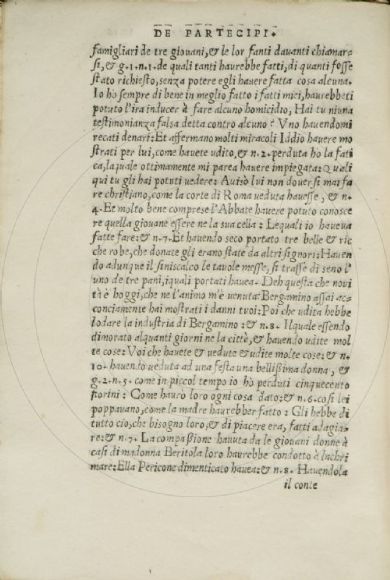 DE PARTECIPI.
famigliari de tre giovani, & le lor fanti davanti chiamar
si, & g. 1. n. 1. de quali tanti haurebbe fatti, di quanti fosse
stato richiesto, senza potere egli havere fatta cosa alcuna.
Io hò sempre di bene in meglio fatto i fatti miei, haurebbeti
potuto l'ira inducer à fare alcuno homicidio, Hai tu niuna
testimonianza falsa detta contro alcuno è Vno havendomi
recati denari: Et affermano molti miracoli Iddio havere mo
strati per lui, come havete udito, & n. 2. perduta ho la fati
ca, la quale ottimamente mi parea havere impiegata: Quali
qui tu gli hai potuti vedere: Avisò lui non doversi mai fa
re christiano, come la corte di Roma veduta havesse, & n.
4. Et molto bene comprese l'Abbate havere potuto conosce
re quella giovane essere ne la sua cella: Lequali io haveva
fatte fare: & n. 7. Et havendo seco portato tre belle & ric
che robe, che donate gli erano state da altri signori: Haven
do adunque il siniscalco le tavole messe, si trasse di seno l'u
no de tre pani, iquali portati havea. Deh questa che novi
tà è hoggi, che ne l'animo m'è venuta: Bergamino assai ac
conciamente hai mostrati i danni tuoi: Poi che udita hebbe
lodare la industria di Bergamino: & n. 8. Ilquale essendo
dimorato alquanti giorni ne la città, & havendo udite mol
te cose: Voi che havete & vedute & udite molte cose: & n.
10. havendo veduta ad una festa una bellissima donna, &
g. 2. n. 5. come in piccol tempo io hò perduti cinquecento
fiorini: Come haurò loro ogni cosa dato: & n. 6. così lei
poppavano, come la madre haurebber fatto: Gli hebbe di
tutto ciò, che bisogno loro, & di piacere era, fatti adagia=
re: & n. 7. La compassione havuta da le giovani donne à
casi di madonna Beritola loro haurebbe condotto è lachri
mare: Ella Pericone dimenticato havea: & n. 8. Havendola
il conte